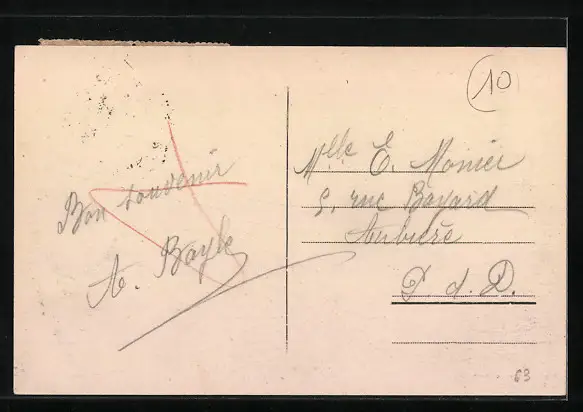 10
Bon souvenir
A. Bayle
Mlle E. Monier
5, rue Bayard
Aubière
P. d. D.
63